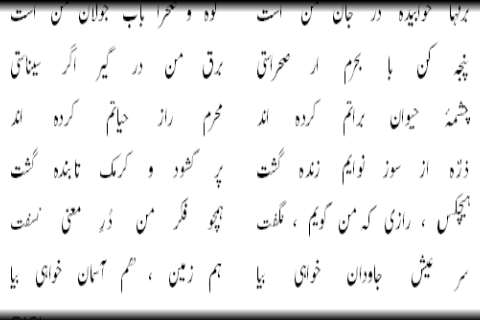 برقہا خوابیده در جان من است کوه و صحرا باب جولان من است
پنجه کن با بحرم ار صحراستی برق من در گیر اگر سیناستی
چشمۂ حیوان براتم کرده اند محرم راز حیاتم کرده اند
ذرّه از سوز نوایم زنده گشت پر گشود و کرمک تابنده گشت
هیچکس ، رازی که من گویم ، نگفت همچو فکر من دُرِ معنی نسفت
سر عیش جاودان خواهی بیا هم زمین ، هم آسمان خواهی بیا